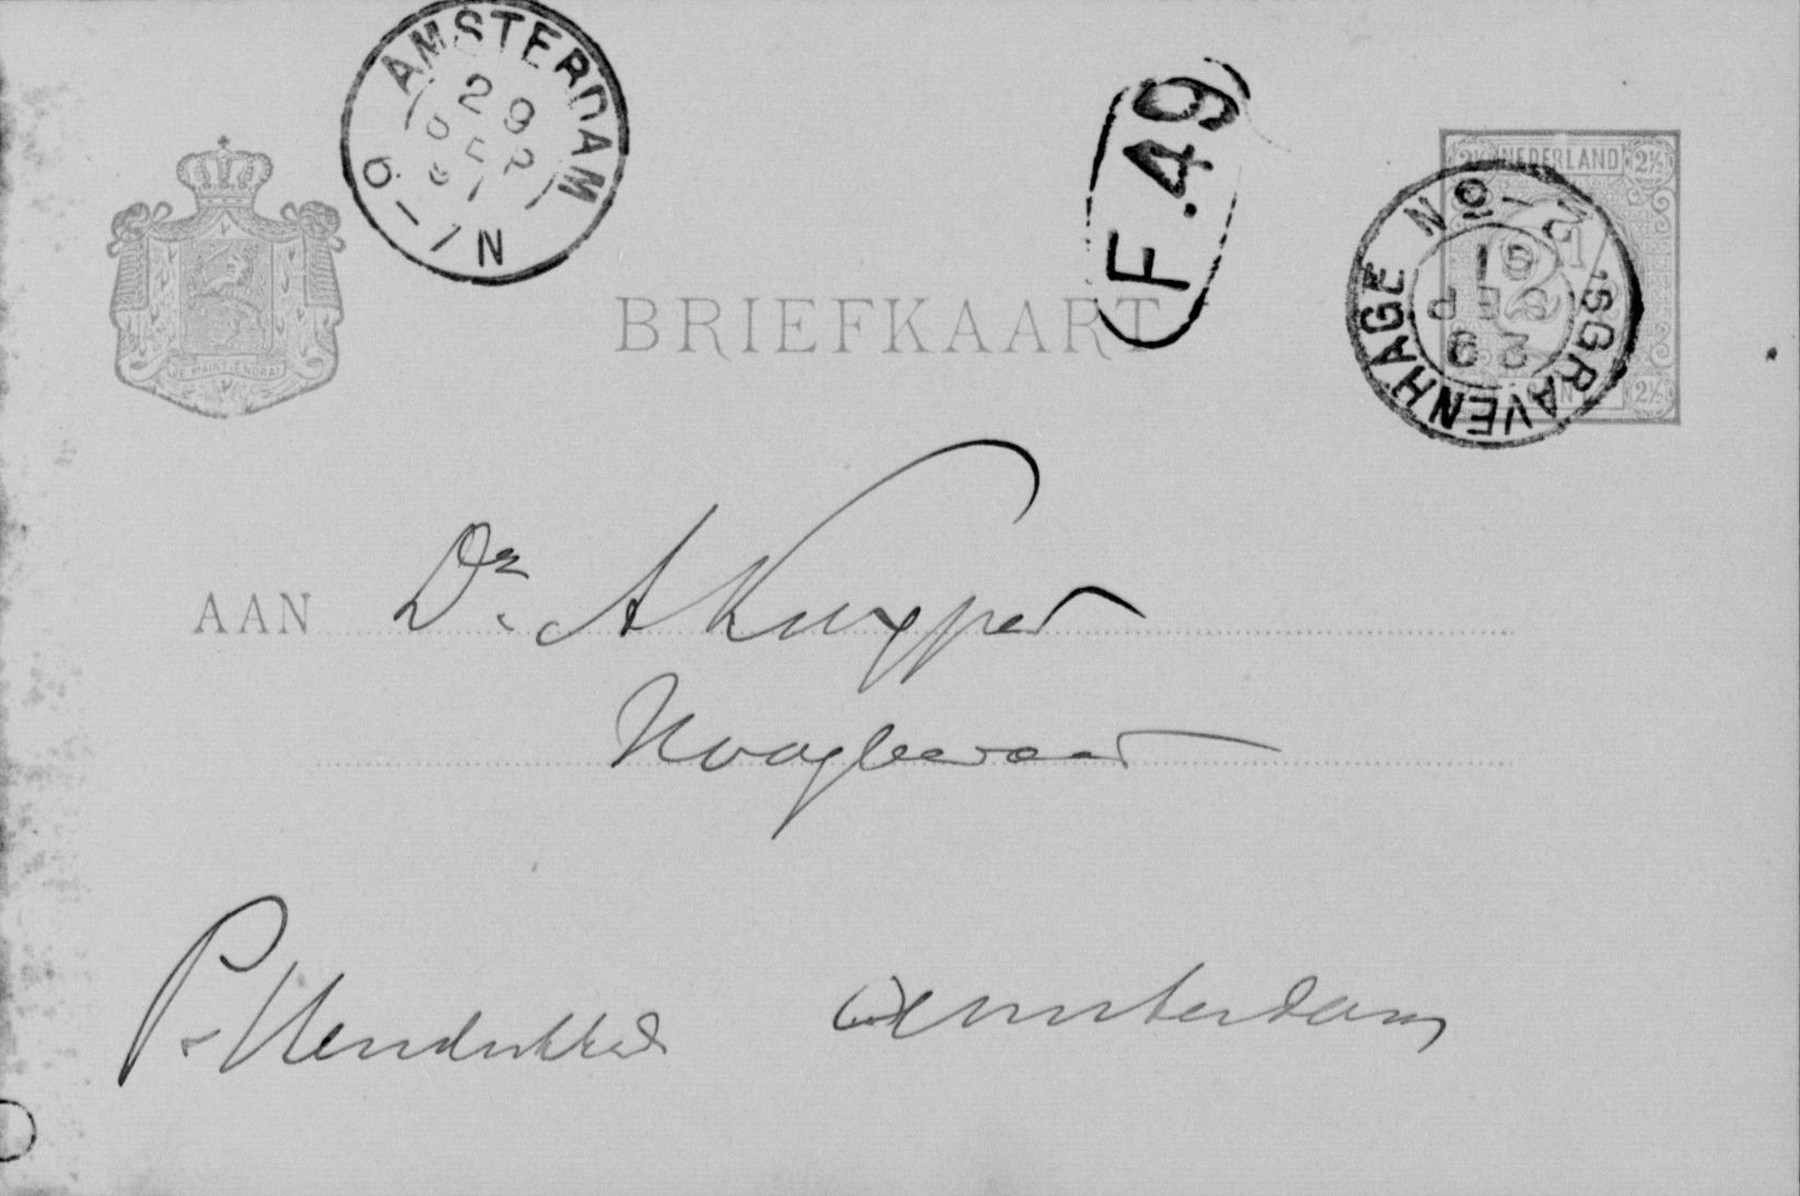 AMSTERDAM
29
SEP
91
6-7N
F.49
NEDERLAND
2½ 2½
2½
'SGRAVENHAGE
29
SEP
91
JE MAINTIENDRAI
BRIEFKAART
AAN Dr. A Kuyper
P. Hendrikkade Amsterdam